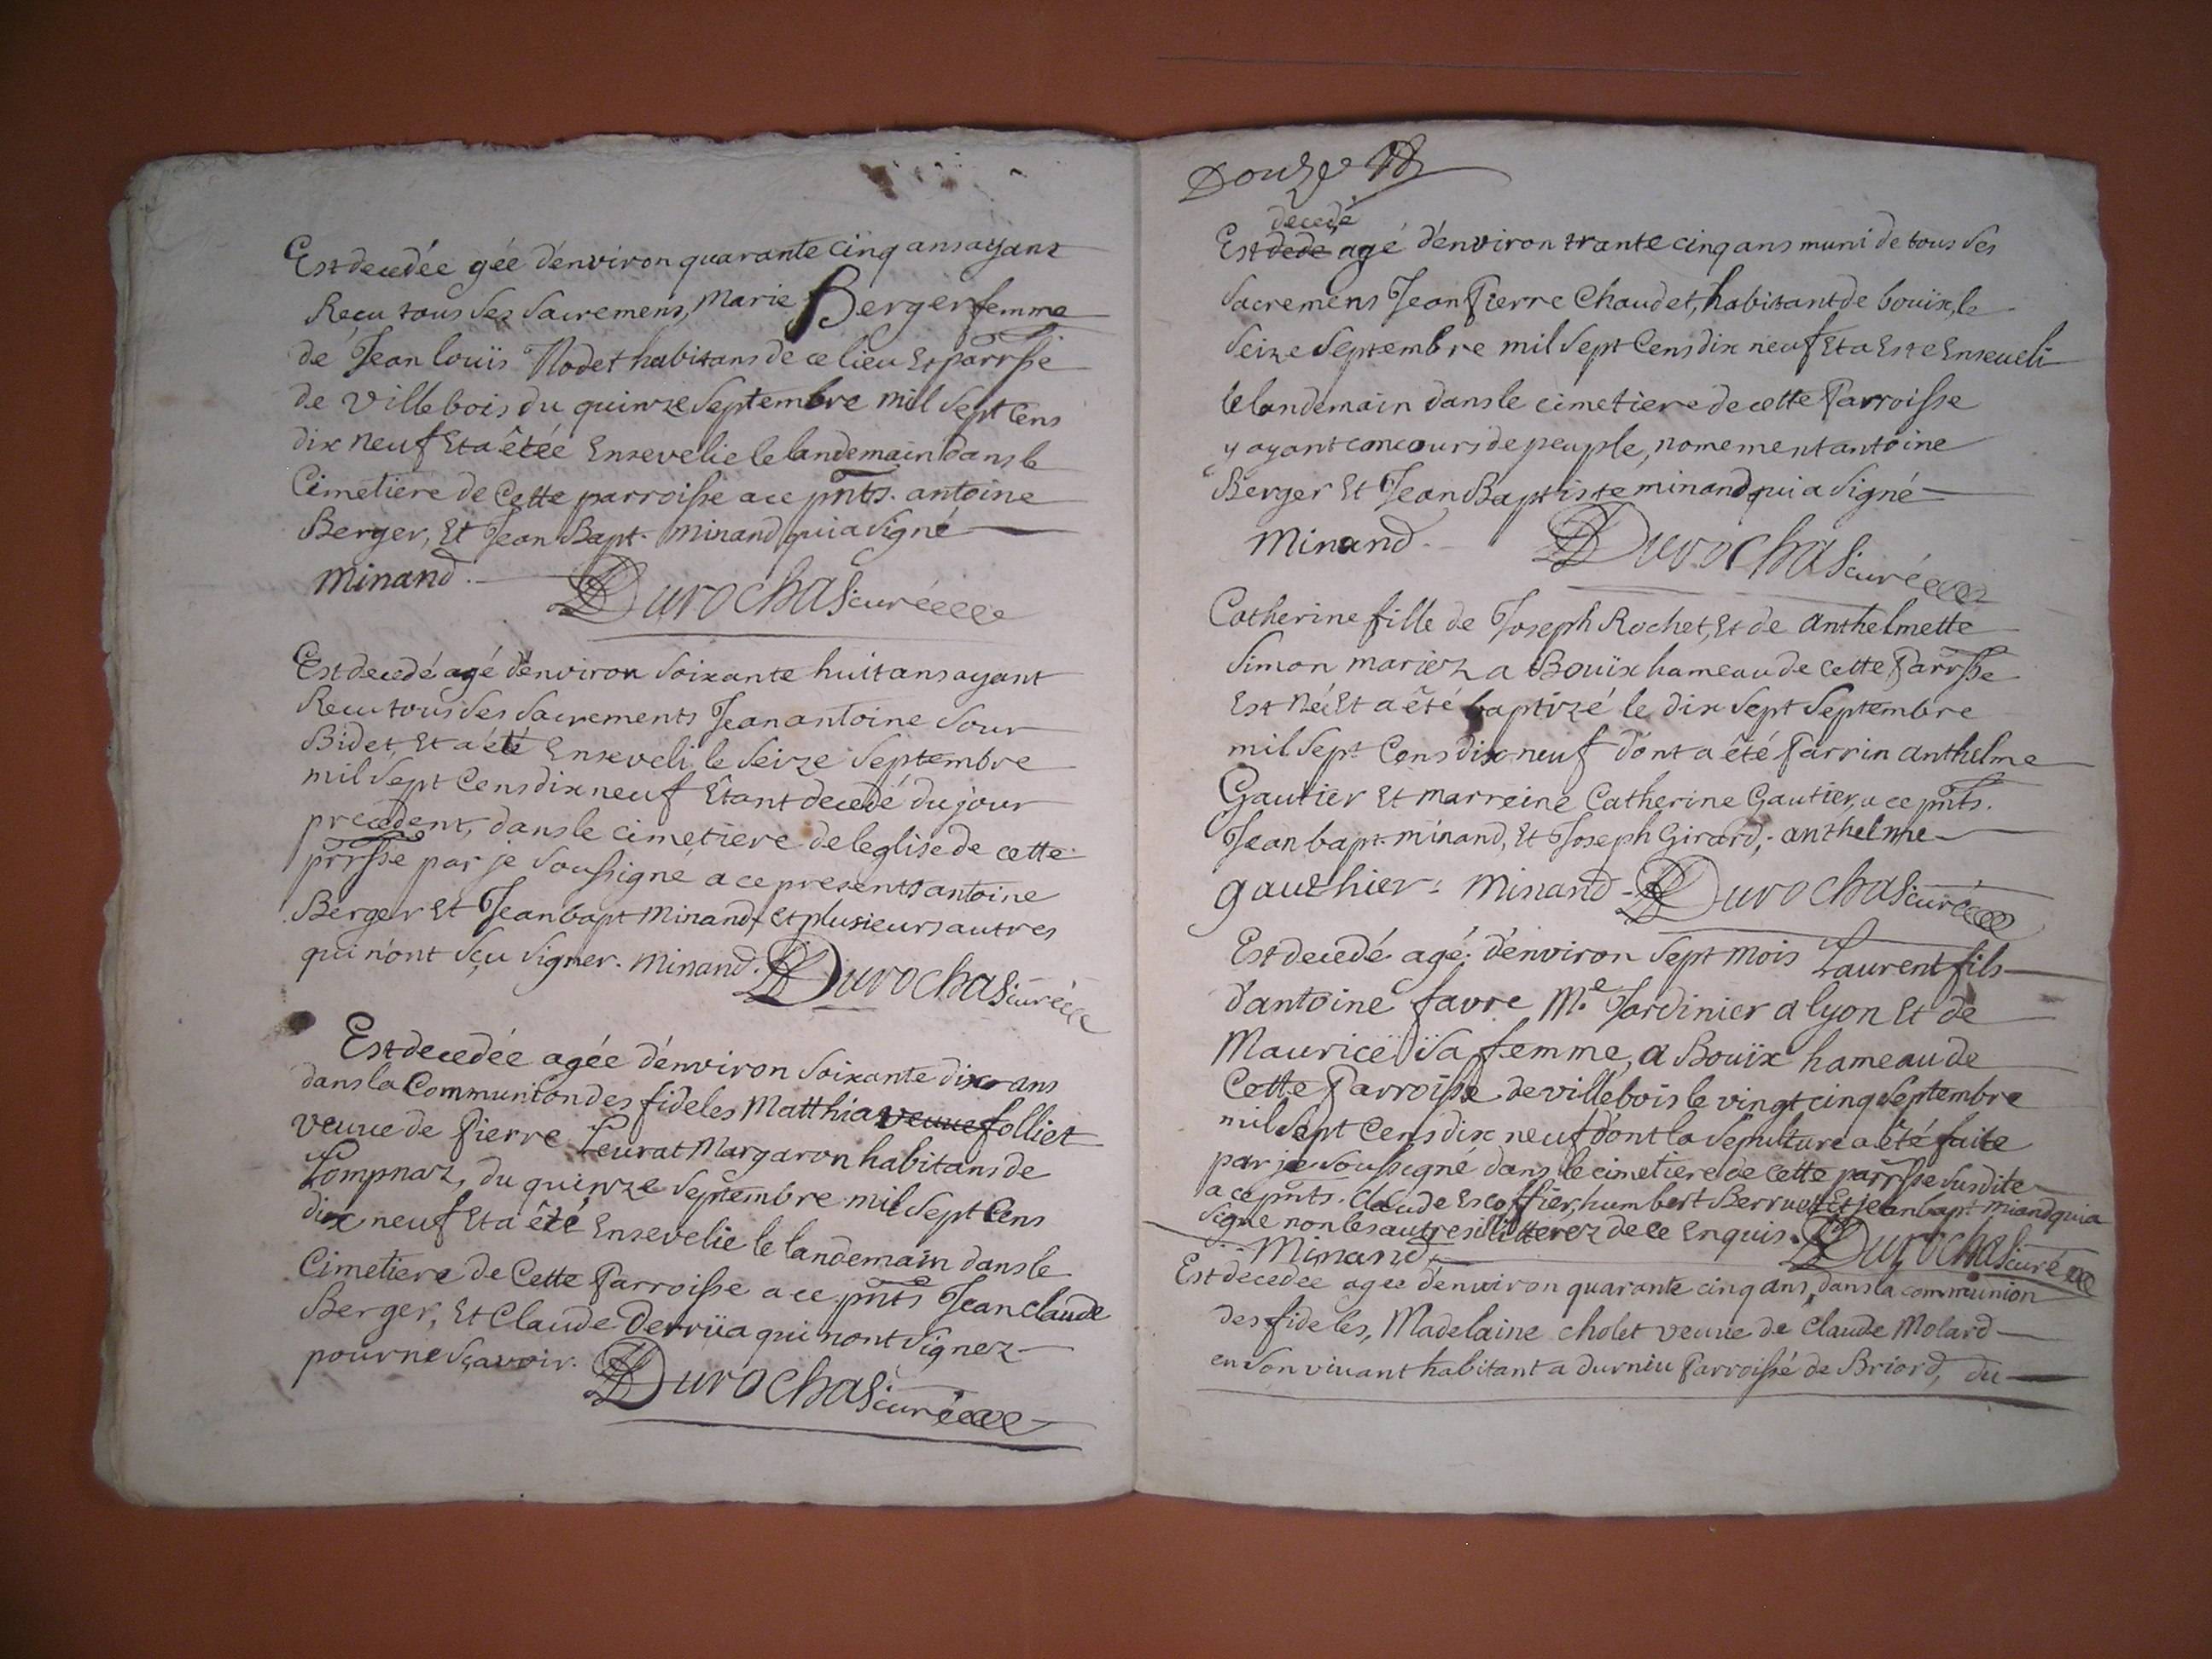 Est decedée gée d'environ quarante cinq ans ayant
Reçu tous ses sacremens, Marie Berger femme
de Jean louïs Nodet habitans de ce lieu Et parrsse
de Villebois du quinze Septembre mil Sept Cens
dix neuf Et a êtée Ensevelie le landemain dans le
Cimetiere de Cette parroisse a ce pnts. antoine
Berger, Et Jean Bapt. Minand qui a signé
Minand. Durochas curé
Est decedé agé d'environ soixante huit ans ayant
Recu tous ses sacrements Jean antoine sour
Bidet, Et a été Enseveli le seize septembre
mil sept Cens dix neuf Etant decedé du jour
precedent, dans le cimetiere de leglise de cette
prrsse par je soussigné a ce presents antoine
Berger Et Jean bapt Minand Et plusieurs autres
qui n'ont sçu signer. Minand. Durochas curé
Est decedée agée d'environ soixante dix ans
dans la Communion des fideles Matthia veuve folliet
veuve de Pierre Teurat Margaron habitans de
Lompnaz, du quinze septembre mil sept Cens
dix neuf Et a été Ensevelie le landemain dans le
Cimetiere de Cette Parroisse a ce pnts Jean claude
Berger, Et Claude Derrüa qui nont signez
pour ne sçavoir. Durochas curé
Douze
decedé
Est dede agé d'environ trante cinq ans muni de tous ses
sacremens Jean Pierre Chaudet, habitant de bouïx, le
seize septembre mil sept Cens dix neuf Et a Este Enseueli
le landemain dans le cimetiere de cette Parroisse
y ayant concours de peuple, nomement antoine
Berger Et Jean Baptiste minand qui a signé
Minand. Durochas curé
Catherine fille de Joseph Rochet, Et de Anthelmette
Simon mariez a Bouïx hameau de cette Parrsse
Est né Et a été baptizé le dix sept septembre
mil sept Cens dix neuf dont a été Parrin anthelme
Gautier Et marreine Catherine Gautier, a ce pnts.
Jean bapt. minand, Et Joseph Girard, anthelme
gauthier. Minand. Durochas curé
Est decedé agé d'environ sept mois Laurent fils
d'antoine favre Me. Jardinier a lyon Et de
Mauriceï sa femme, a Bouïx hameau de
Cette Parroisse de villebois le vingt cinq septembre
mil sept Cens dix neuf dont la sepulture a été faite
par je soussigné dans le cimetiere de cette parrsse susdite
a ce pnts. Claude Escoffier, humbert Berruet Et jean bapt miand qui a
signé non les autres illitterez de ce Enquis. Durochas curé
Minand.
Est decedée agée d'environ quarante cinq ans, dans la communion
des fideles, Madelaine cholet veuve de Claude Molard
en son vivant habitant a durniu Parroisse de Briord, du